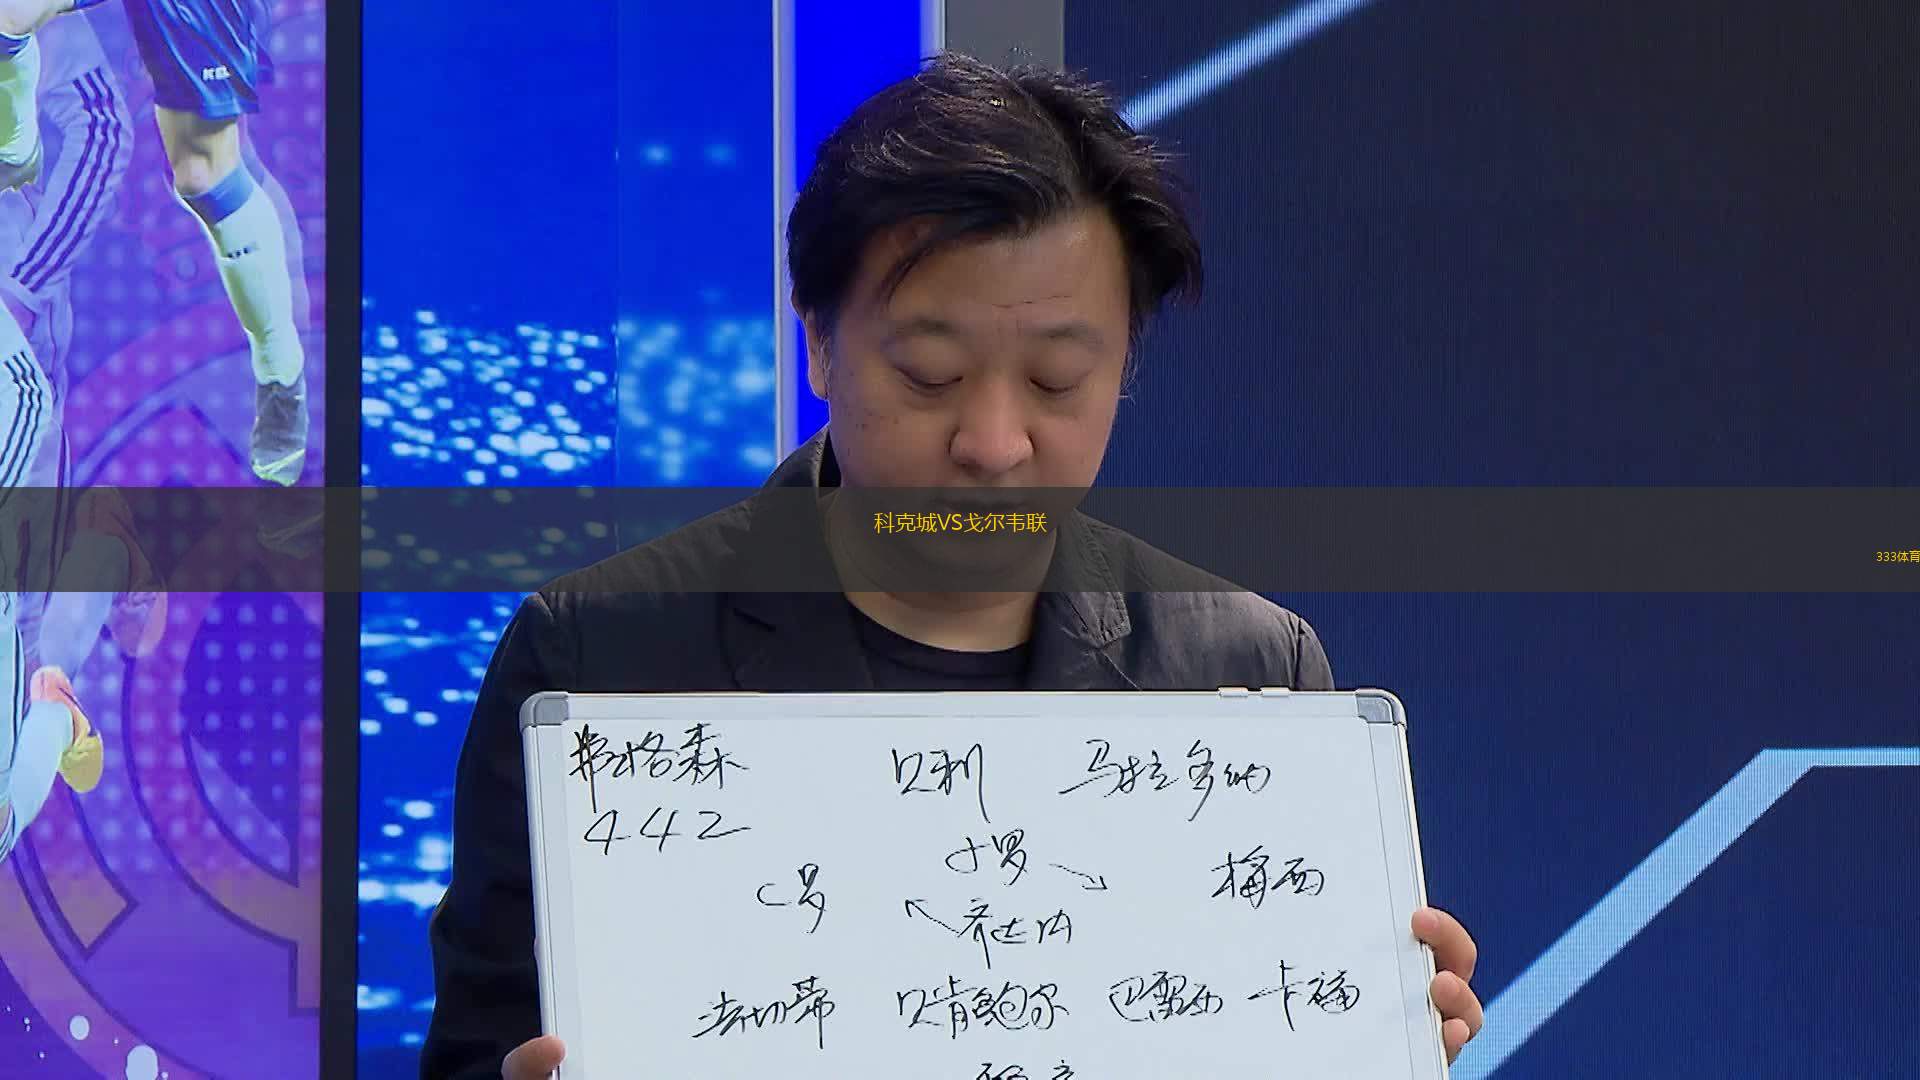 科克城VS戈尔韦联
333体育
弗格森 贝利 马拉多纳
442
小罗
C罗 梅西
齐达内
法切蒂 贝肯鲍尔 巴雷西 卡福